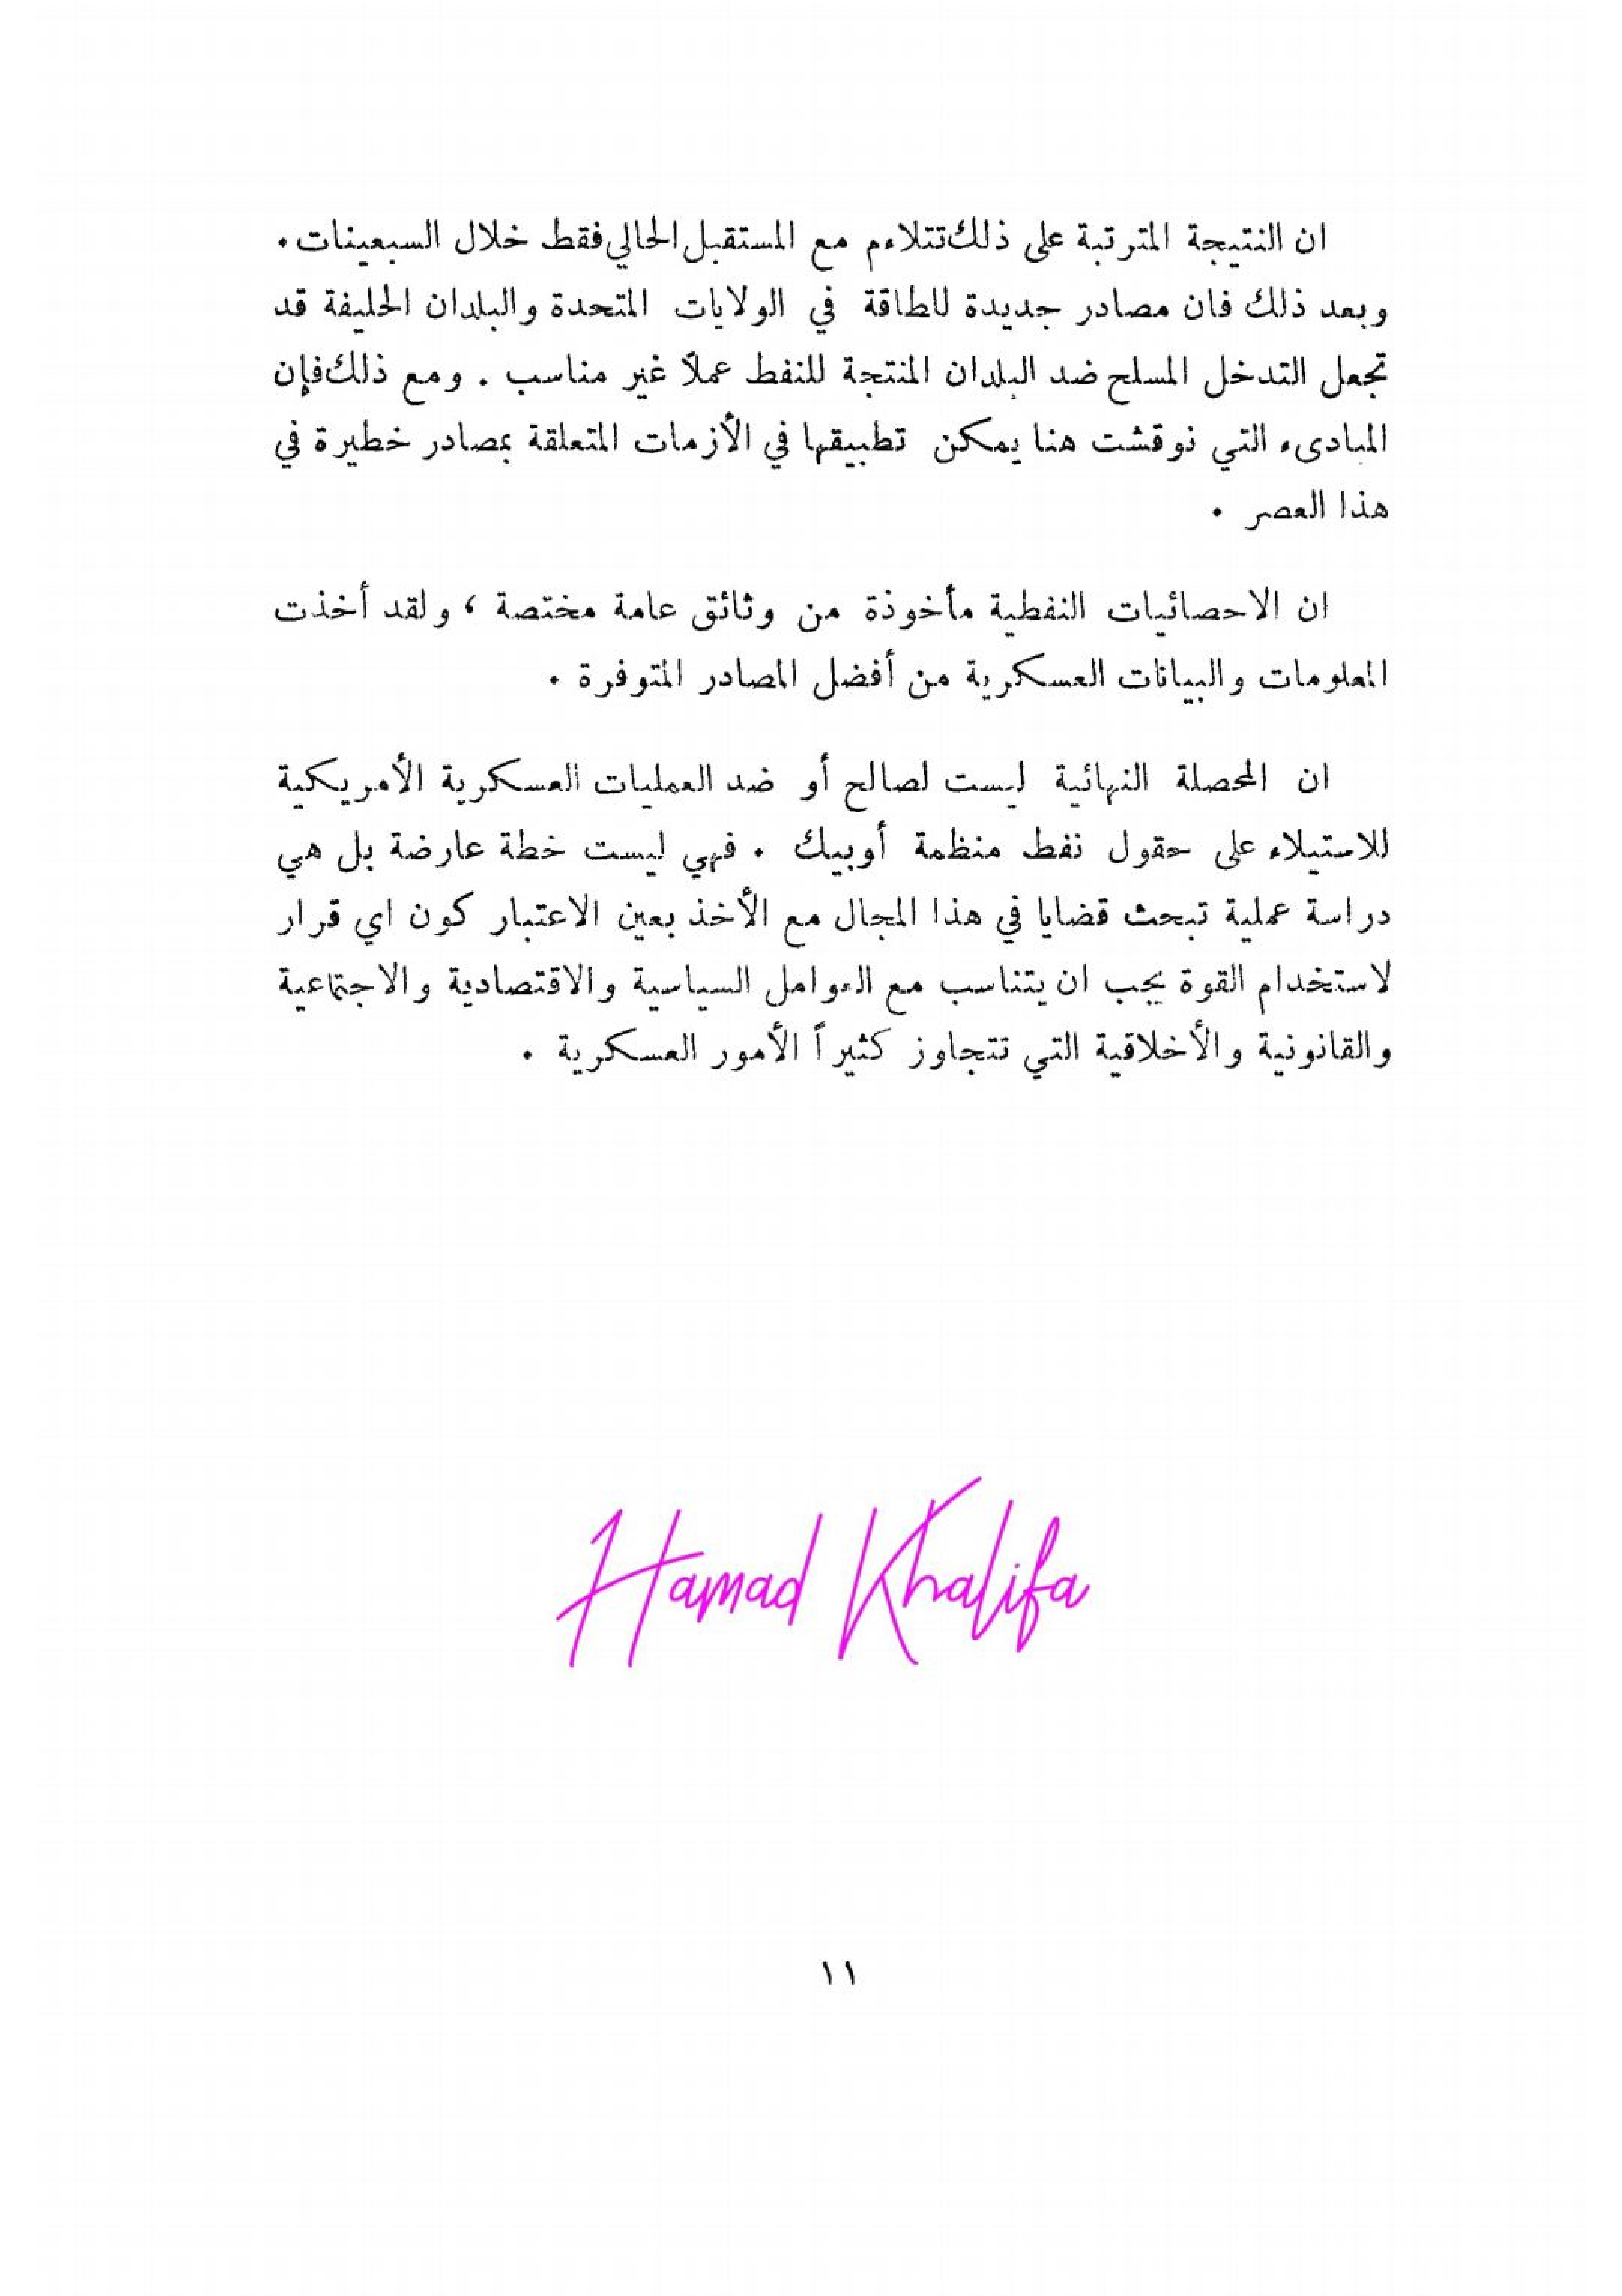 ان النتيجة المترتبة على ذلك تتلاءم مع المستقبل الحالي فقط خلال السبعينات .
وبعد ذلك فان مصادر جديدة للطاقة في الولايات المتحدة والبلدان الحليفة قد
تجعل التدخل المسلح ضد البلدان المنتجة للنفط عملاً غير مناسب . ومع ذلك فإن
المبادىء التي نوقشت هنا يمكن تطبيقها في الأزمات المتعلقة بمصادر خطيرة في
هذا العصر .
ان الاحصائيات النفطية مأخوذة من وثائق عامة مختصة ، ولقد أخذت
المعلومات والبيانات العسكرية من أفضل المصادر المتوفرة .
ان المحصلة النهائية ليست لصالح أو ضد العمليات العسكرية الأمريكية
للاستيلاء على حقول نفط منظمة أوبيك . فهي ليست خطة عارضة بل هي
دراسة عملية تبحث قضايا في هذا المجال مع الأخذ بعين الاعتبار كون اي قرار
لاستخدام القوة يجب ان يتناسب مع العوامل السياسية والاقتصادية والاجتماعية
والقانونية والأخلاقية التي تتجاوز كثيراً الأمور العسكرية .
Hamad Khalifa
١١